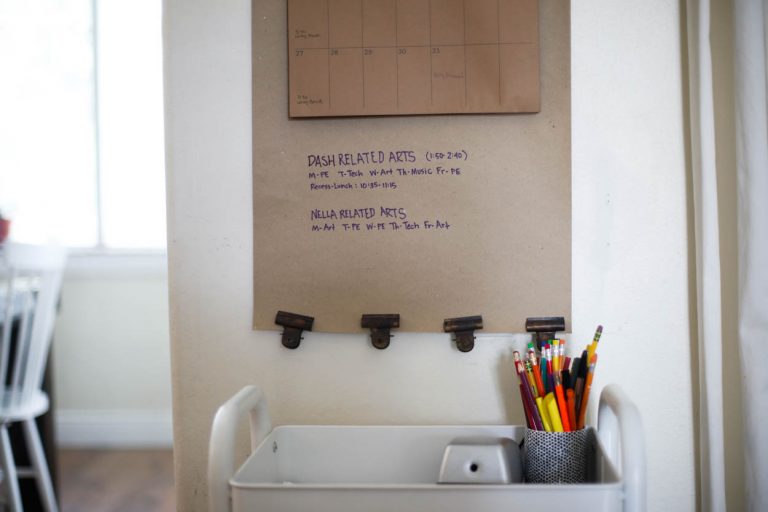 27 28 29 30 31
DASH RELATED ARTS (1:50-2:40)
M-PE T-Tech W-Art Th-Music Fr-PE
Recess-Lunch: 10:35-11:15
NELLA RELATED ARTS
M-Art T-PE W-PE Th-Tech Fr-Art